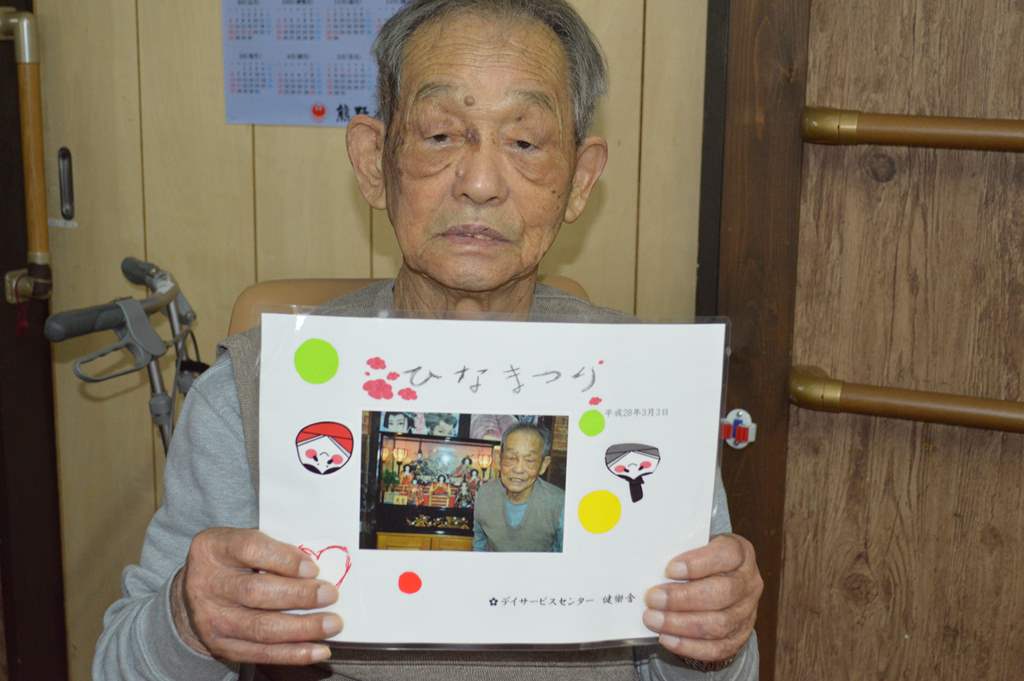 熊野
ひなまつり
平成28年3月3日
デイサービスセンター 健樂舎